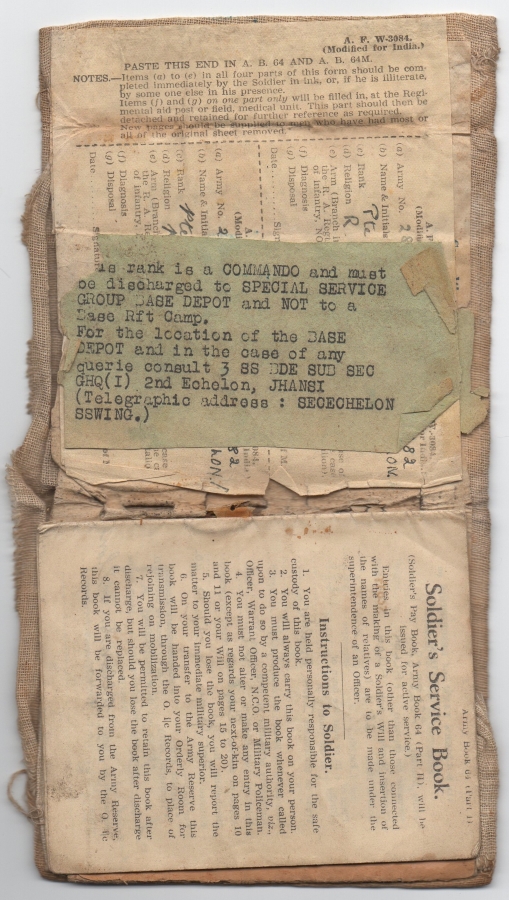 A. F. W-3084.
(Modified for India.)
PASTE THIS END IN A. B. 64 AND A. B. 64M.
NOTES.—Items (a) to (e) in all four parts of this form should be com-
pleted immediately by the Soldier in ink, or, if he is illiterate,
by some one else in his presence.
Items (f) and (g) on one part only will be filled in, at the Regi-
mental aid post or field, medical unit. This part should then be
detached and retained for further reference as required.
New pages should be supplied to men who have had most or
all of the original sheet removed.
(a) Army No. 2
(b) Name & Initials
(c) Rank Pte
(d) Religion R
(e) Arm (Branch
the R. A. Regt
of infantry,
(f) Diagnosis
(g) Disposal
Date
(a) Army No. 2
(b) Name & Initia
(c) Rank Pte
(d) Religion
(e) Arm (Branc
the R. A. Re
of infantry,
(f) Diagnosis
(g) Disposal
Date
is rank is a COMMANDO and must
be discharged to SPECIAL SERVICE
GROUP BASE DEPOT and NOT to a
Base Rft Camp.
For the location of the BASE
DEPOT and in the case of any
querie consult 3 SS BDE SUB SEC
GHQ(I) 2nd Echelon, JHANSI
(Telegraphic address : SECECHELON
SSWING.)
82
ON.
82
Army Book 64 (Part I)
Soldier's Service Book.
(Soldier's Pay Book, Army Book 64 (Part II), will be
issued for active service.)
Entries in this book (other than those connected
with the making of a Soldier's Will and insertion of
the names of relatives) are to be made under the
superintendence of an Officer.
Instructions to Soldier.
1. You are held personally responsible for the safe
custody of this book.
2. You will always carry this book on your person.
3. You must produce the book whenever called
upon to do so by a competent military authority, viz.,
Officer, Warrant Officer, N.C.O. or Military Policeman.
4. You must not alter or make any entry in this
book (except as regards your next-of-kin on pages 10
and 11 or your Will on pages 15 to 20).
5. Should you lose the book, you will report the
matter to your immediate military superior.
6. On your transfer to the Army Reserve this
book will be handed into your Orderly Room for
transmission, through the O. i/c Records, to place of
rejoining on mobilization.
7. You will be permitted to retain this book after
discharge, but should you lose the book after discharge
it cannot be replaced.
8. If you are discharged from the Army Reserve,
this book will be forwarded to you by the O. i/c
Records.